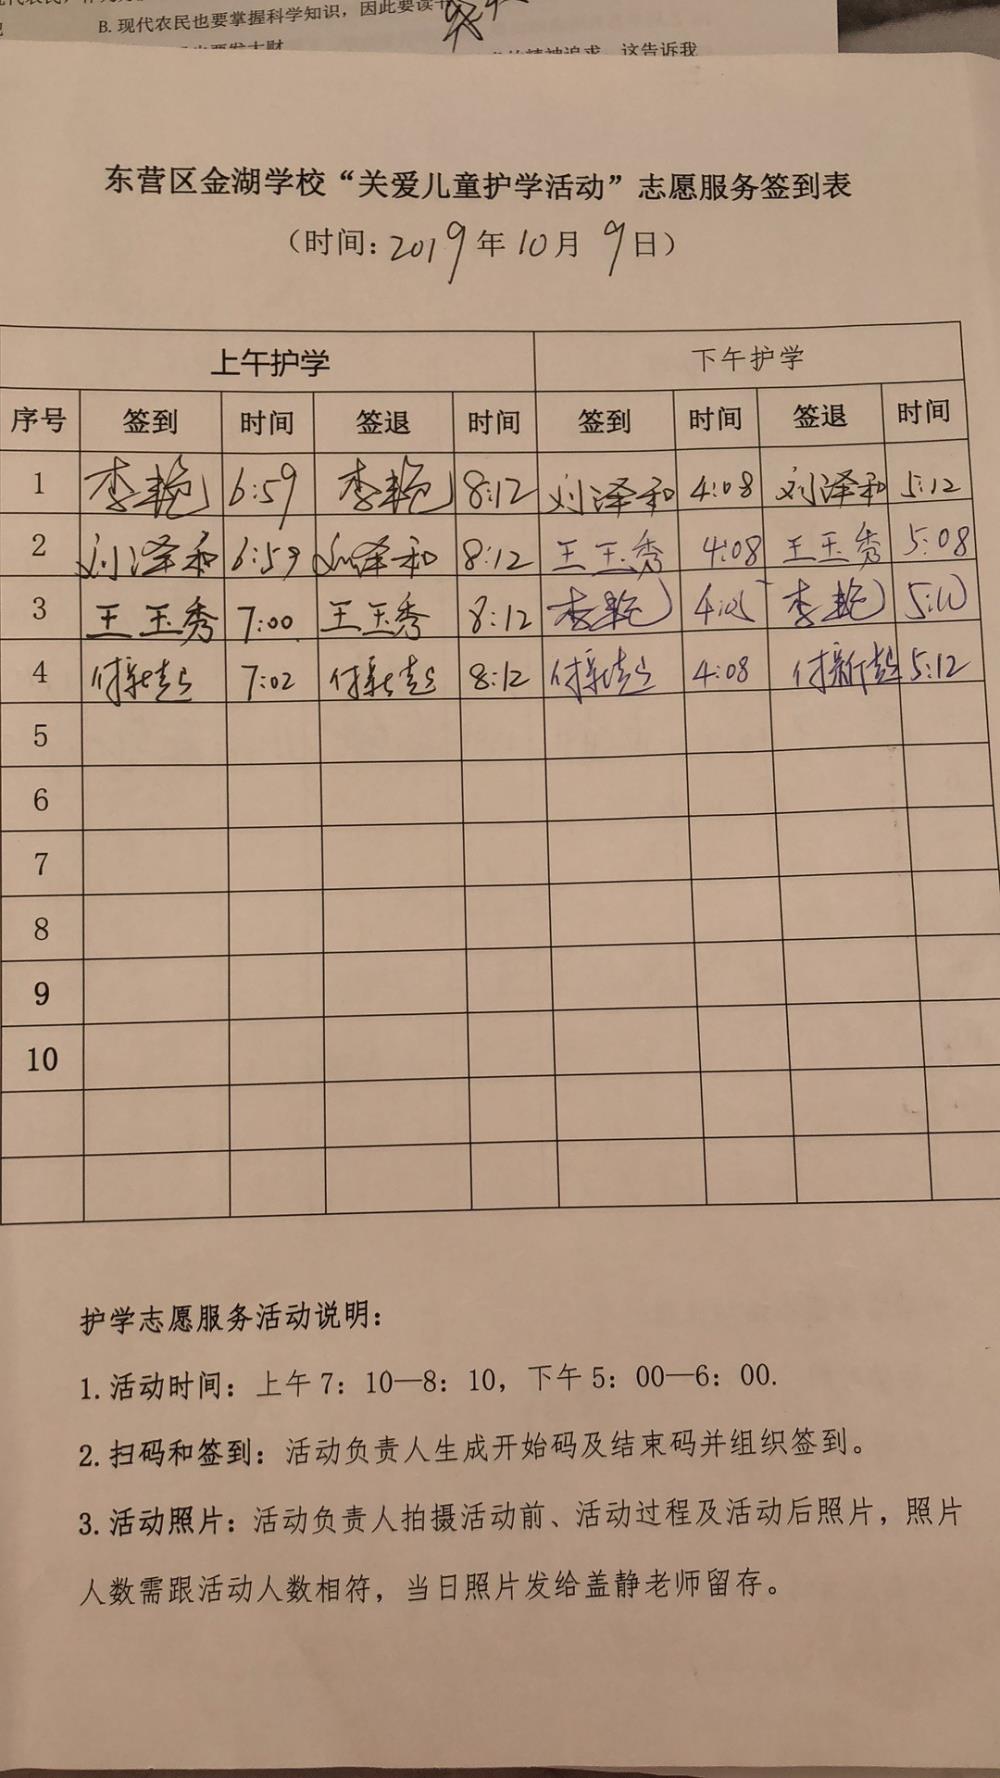 B. 现代农民也要掌握科学知识，因此要读
精神追求，这告诉我
东营区金湖学校“关爱儿童护学活动”志愿服务签到表
（时间: 2019年10月9日）
上午护学 下午护学
序号 签到 时间 签退 时间 签到 时间 签退 时间
1 李艳 6:59 李艳 8:12 刘泽和 4:08 刘泽和 5:12
2 刘泽和 6:59 刘泽和 8:12 王玉秀 4:08 王玉秀 5:08
3 王玉秀 7:00 王玉秀 8:12 李艳 4:05 李艳 5:10
4 付新超 7:02 付新超 8:12 付新超 4:08 付新超 5:12
5
6
7
8
9
10
护学志愿服务活动说明：
1.活动时间：上午7：10—8：10，下午5：00—6：00.
2.扫码和签到：活动负责人生成开始码及结束码并组织签到。
3.活动照片：活动负责人拍摄活动前、活动过程及活动后照片，照片
人数需跟活动人数相符，当日照片发给盖静老师留存。